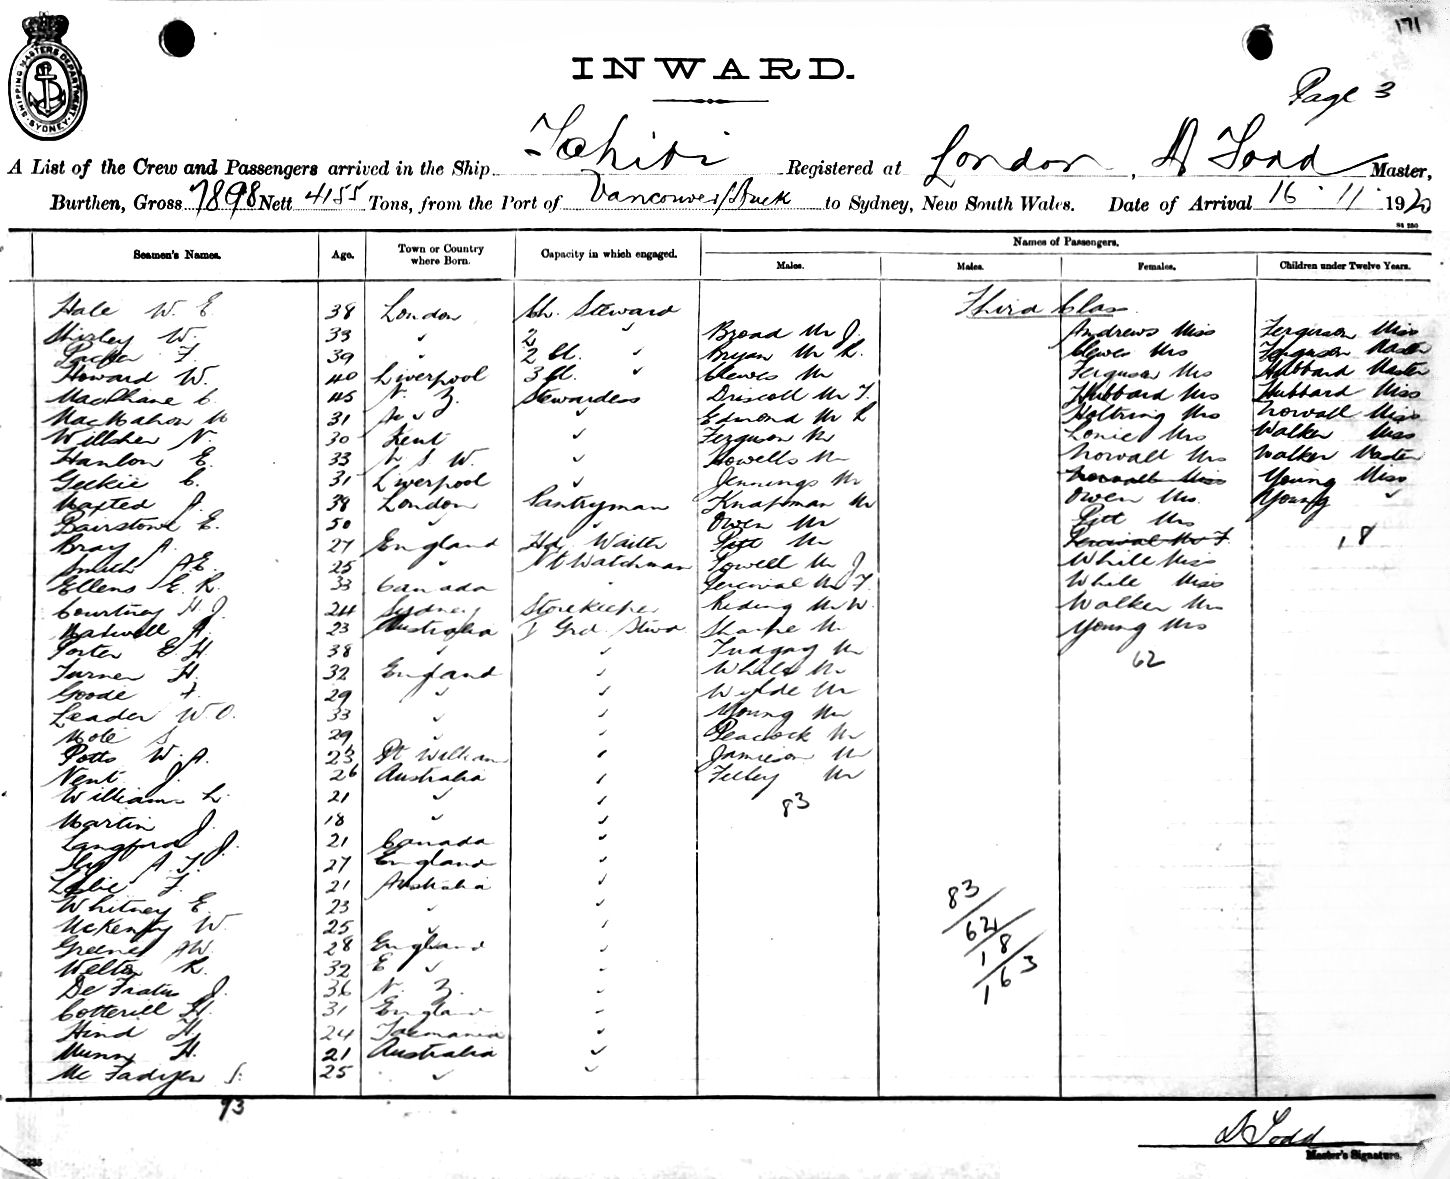 171
SHIPPING MASTERS DEPARTMENT SYDNEY
INWARD.
Page 3
A List of the Crew and Passengers arrived in the Ship Tahiti Registered at London, A Todd Master,
Burthen, Gross 7898 Nett 4155 Tons, from the Port of Vancouver/ to Sydney, New South Wales. Date of Arrival 16 . 11 . 1920
Seamen's Names. Age. Town or Country where Born. Capacity in which engaged. Names of Passengers.
Males. Males. Females. Children under Twelve Years.
Third Class
Hale W. E. 38 London Ch. Steward
Shirley W. 33 " 2 " Broad Mr J. Andrews Miss Ferguson Miss
Packer F. 39 " 2 Cl. " Bryan Mr R. Clewes Mrs Ferguson Master
Howard W. 40 Liverpool 3 Cl. " Clewes Mr Ferguson Mrs Hubbard Master
MacPhane C. 45 N. Z. Stewardess Driscoll Mr T. Hubbard Mrs Hubbard Miss
MacMahon M 31 " Edmond Mr L Holtring Mrs Norvall Miss
Willsher N. 30 Kent " Ferguson Mr Lonie Mrs Walker Miss
Hanlon E. 33 N S W. " Howells Mr Norvall Mrs Walker Master
Geekie C. 31 Liverpool " Jennings Mr Norvall Miss Young Miss
Maxted J. 38 London Pantryman Knapman Mr Owen Mrs. Young "
Bairstow E. 50 " " Owen Mr Pitt Mrs
Bray A. 27 England Hd. Waiter Pitt Mr Percival Mr F. 18
Smith A E. 25 " Nt Watchman Powell Mr J. While Miss
Ellens E. R. 33 Canada " Percival Mr F. While Miss
Courtney H. J. 24 Sydney Storekeeper Riding Mr W. Walker Mrs
Madwell A. 23 Australia Grd. Stwd Sharpe Mr Young Mrs
Porter E H. 38 " " Tudgay Mr 62
Turner H. 32 England " While Mr
Goode F. 29 " " Wylde Mr
Leader W. O. 33 " " Young Mr
Mole S. 29 " " Peacock Mr
Potts W. A. 23 Pt William " Jamieson Mr
Nent J. 26 Australia " Feeley Mr
Williams L. 21 " " 83
Martin J. 18 " "
Langford J. 21 Canada "
A. J. 27 England "
Leslie F. 21 Australia " 83
Whitney E. 23 " "
McKenty W. 25 " " 62
Greene A W. 28 England " 18
Welton R. 32 E " " 163
De Fratus J. 36 N. Z. "
Cotterill H. 31 England "
Hind H. 24 Tasmania "
Munn H. 21 Australia "
McFadyen S. 25 " "
93
A Todd
Master's Signature.